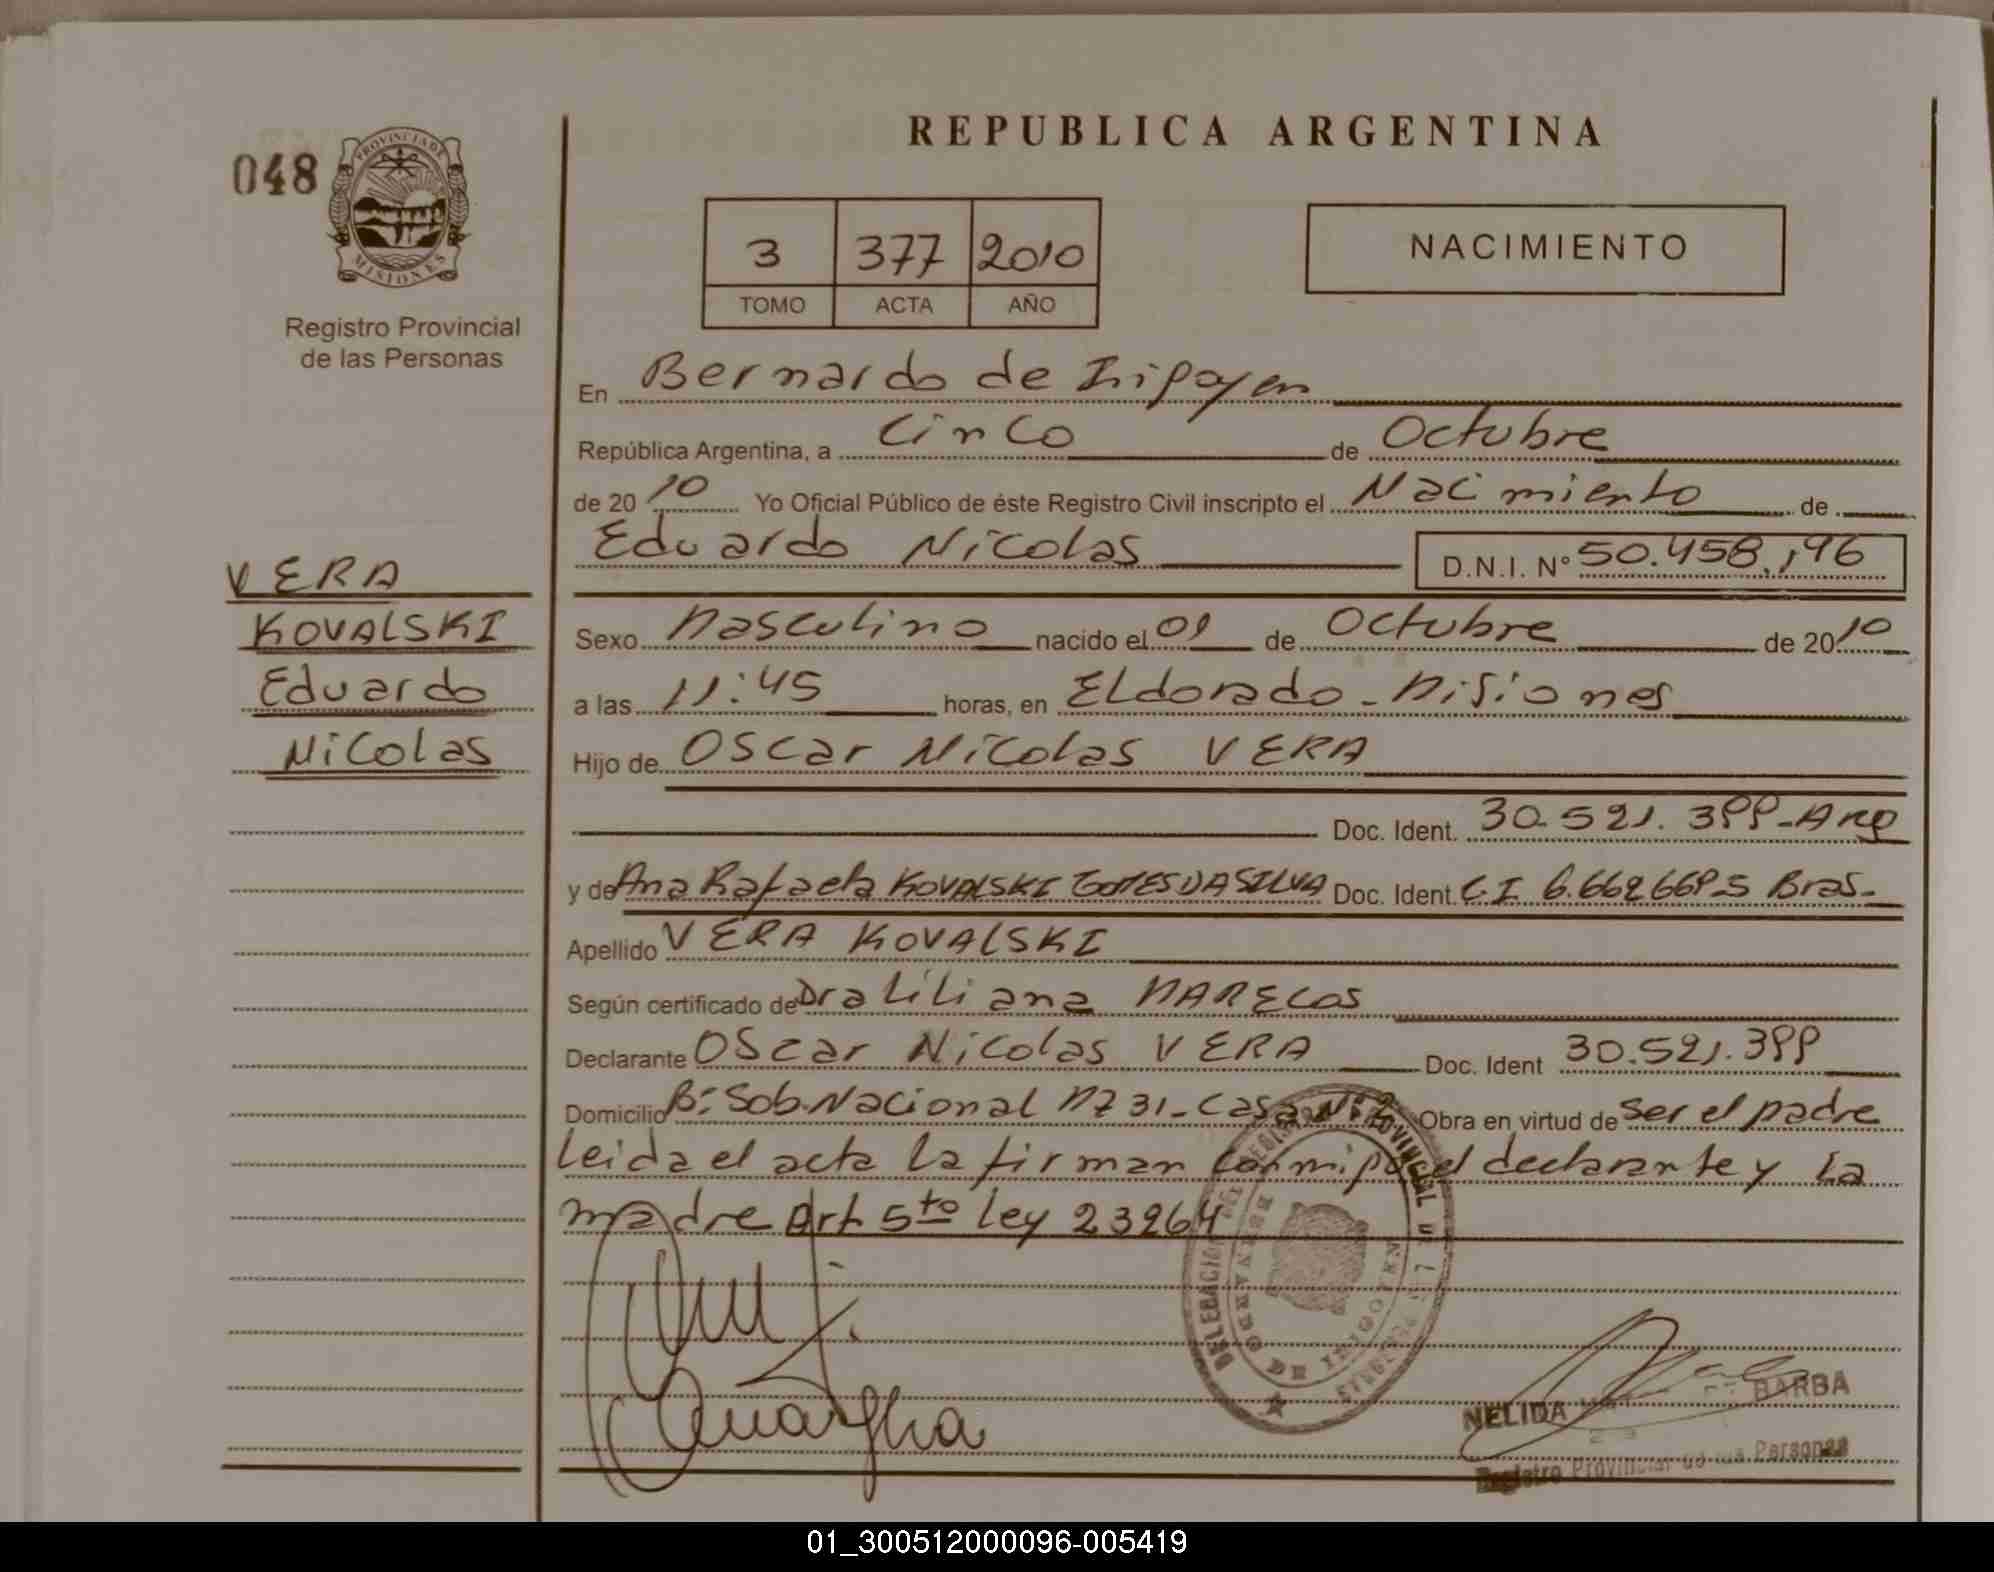 REPUBLICA ARGENTINA
048
PROVINCIA DE
MISIONES
Registro Provincial
de las Personas
3 377 2010
TOMO ACTA AÑO
NACIMIENTO
En Bernardo de Irigoyen
República Argentina, a Cinco de Octubre
de 20 10 Yo Oficial Público de éste Registro Civil inscripto el Nacimiento de
Eduardo Nicolas D.N.I. N° 50.458.196
VERA
KOVALSKI
Eduardo
Nicolas
Sexo Masculino nacido el 01 de Octubre de 20 10
a las 11:45 horas, en Eldorado - Misiones
Hijo de Oscar Nicolas VERA
Doc. Ident. 30.521.399-Arg
y de Ana Rafaela KOVALSKI GOMES DA SILVA Doc. Ident. C I 6.662669-5 Bras-
Apellido VERA KOVALSKI
Según certificado de Dra Liliana MARECOS
Declarante Oscar Nicolas VERA Doc. Ident 30.521.399
Domicilio Bº Sob. Nacional MZ 31 - Casa Nº 2 Obra en virtud de ser el padre
leida el acta la firman conmigo el declarante y la
madre Art 5to ley 23264
DELEGACION REGISTRO PROVINCIAL DE LAS PERSONAS
BERNARDO DE IRIGOYEN
NELIDA BARBA
Registro Provincial de las Personas
01_300512000096-005419